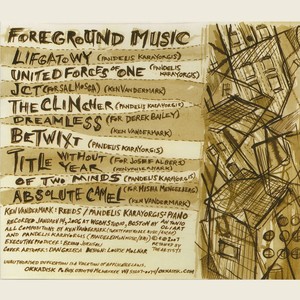 FOREGROUND MUSIC
LIFGATOWY (PANDELIS KARAYORGIS)
UNITED FORCES OF ONE (PANDELIS KARAYORGIS)
JCT (FOR SAL MOSCA) (KEN VANDERMARK)
THE CLINCHER (PANDELIS KARAYORGIS)
DREAMLESS (FOR DEREK BAILEY)
(KEN VANDERMARK)
BETWIXT (PANDELIS KARAYORGIS)
TITLE WITHOUT YEAR (FOR JOSEF ALBERS)
(KEN VANDERMARK)
OF TWO MINDS (PANDELIS KARAYORGIS)
ABSOLUTE CAMEL (FOR MISHA MENGELBERG)
(KEN VANDERMARK)
KEN VANDERMARK: REEDS / PANDELIS KARAYORGIS: PIANO
RECORDED JANUARY 14, 2006 AT
ALL COMPOSITIONS BY KEN VANDERMARK
AND PANDELIS KARAYORGIS
EXECUTIVE PRODUCER: BRUNO JOHNSON
COVER ARTWORK: DAN GRZECA DESIGN: LOUISE MOLNAR
OKKADISK